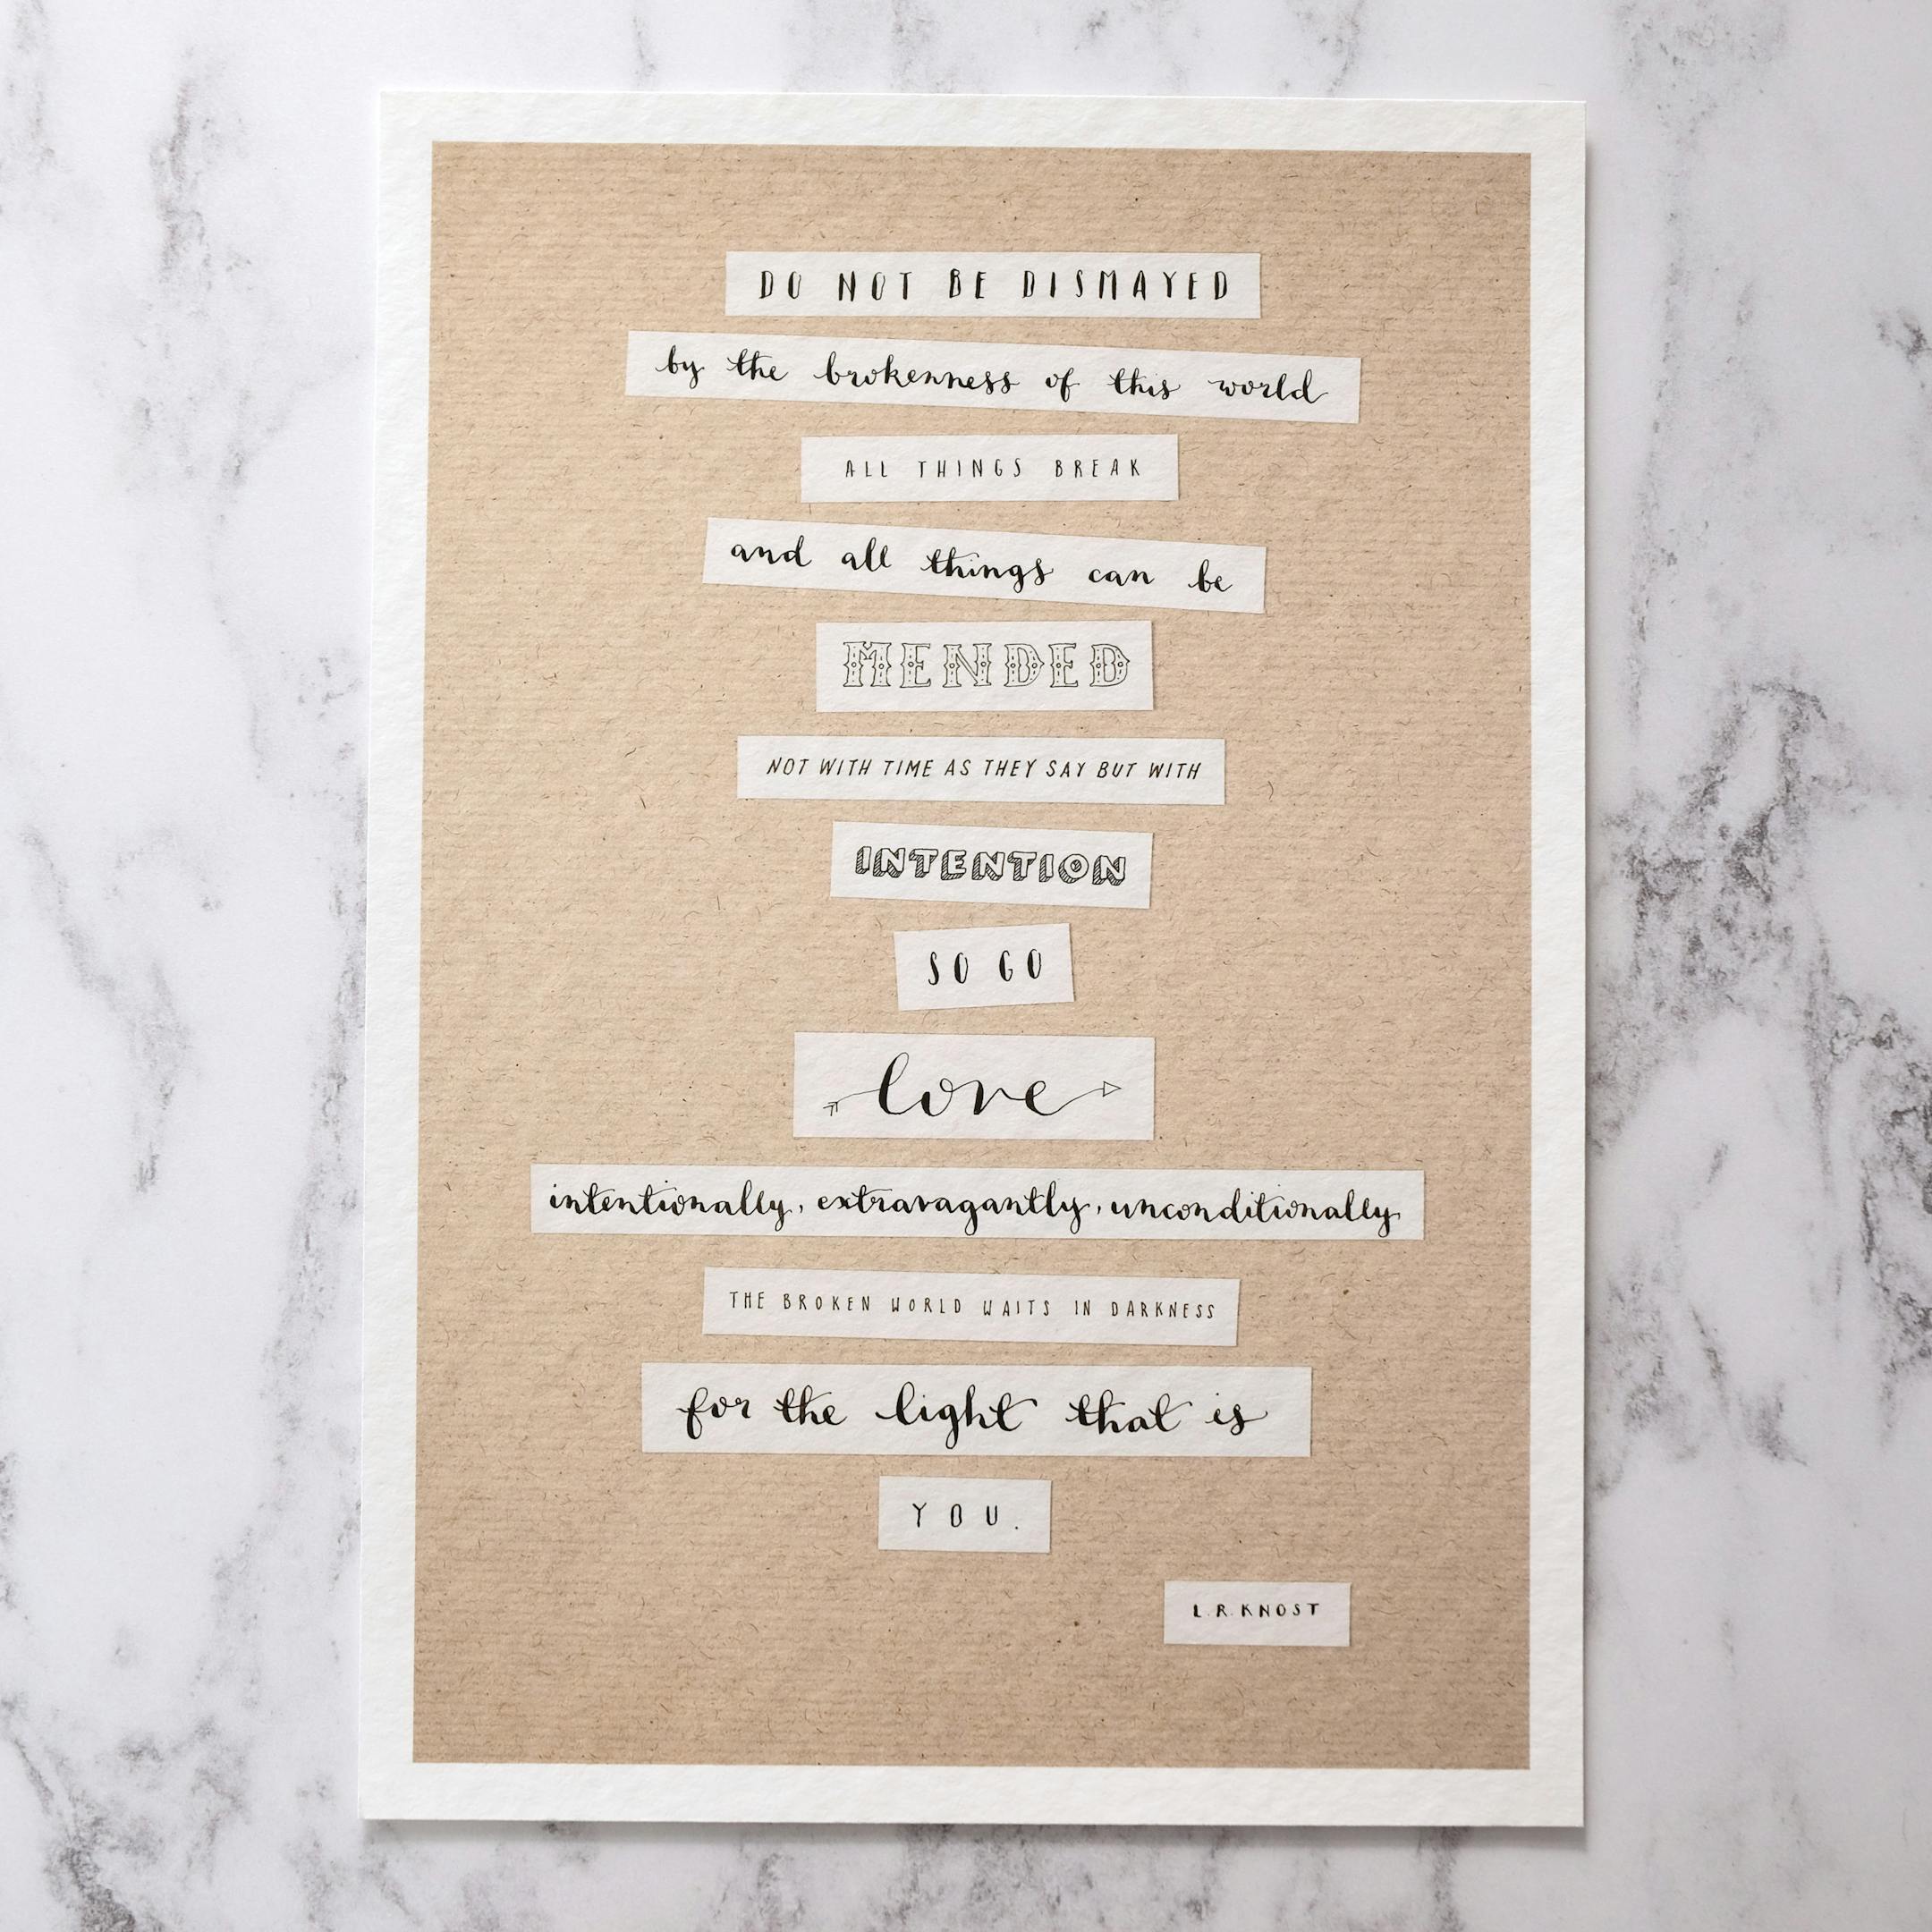 DO NOT BE DISMAYED
by the brokenness of this world
ALL THINGS BREAK
and all things can be
MENDED
NOT WITH TIME AS THEY SAY BUT WITH
INTENTION
SO GO
love
intentionally, extravagantly, unconditionally
THE BROKEN WORLD WAITS IN DARKNESS
for the light that is
YOU.
L.R.KNOST